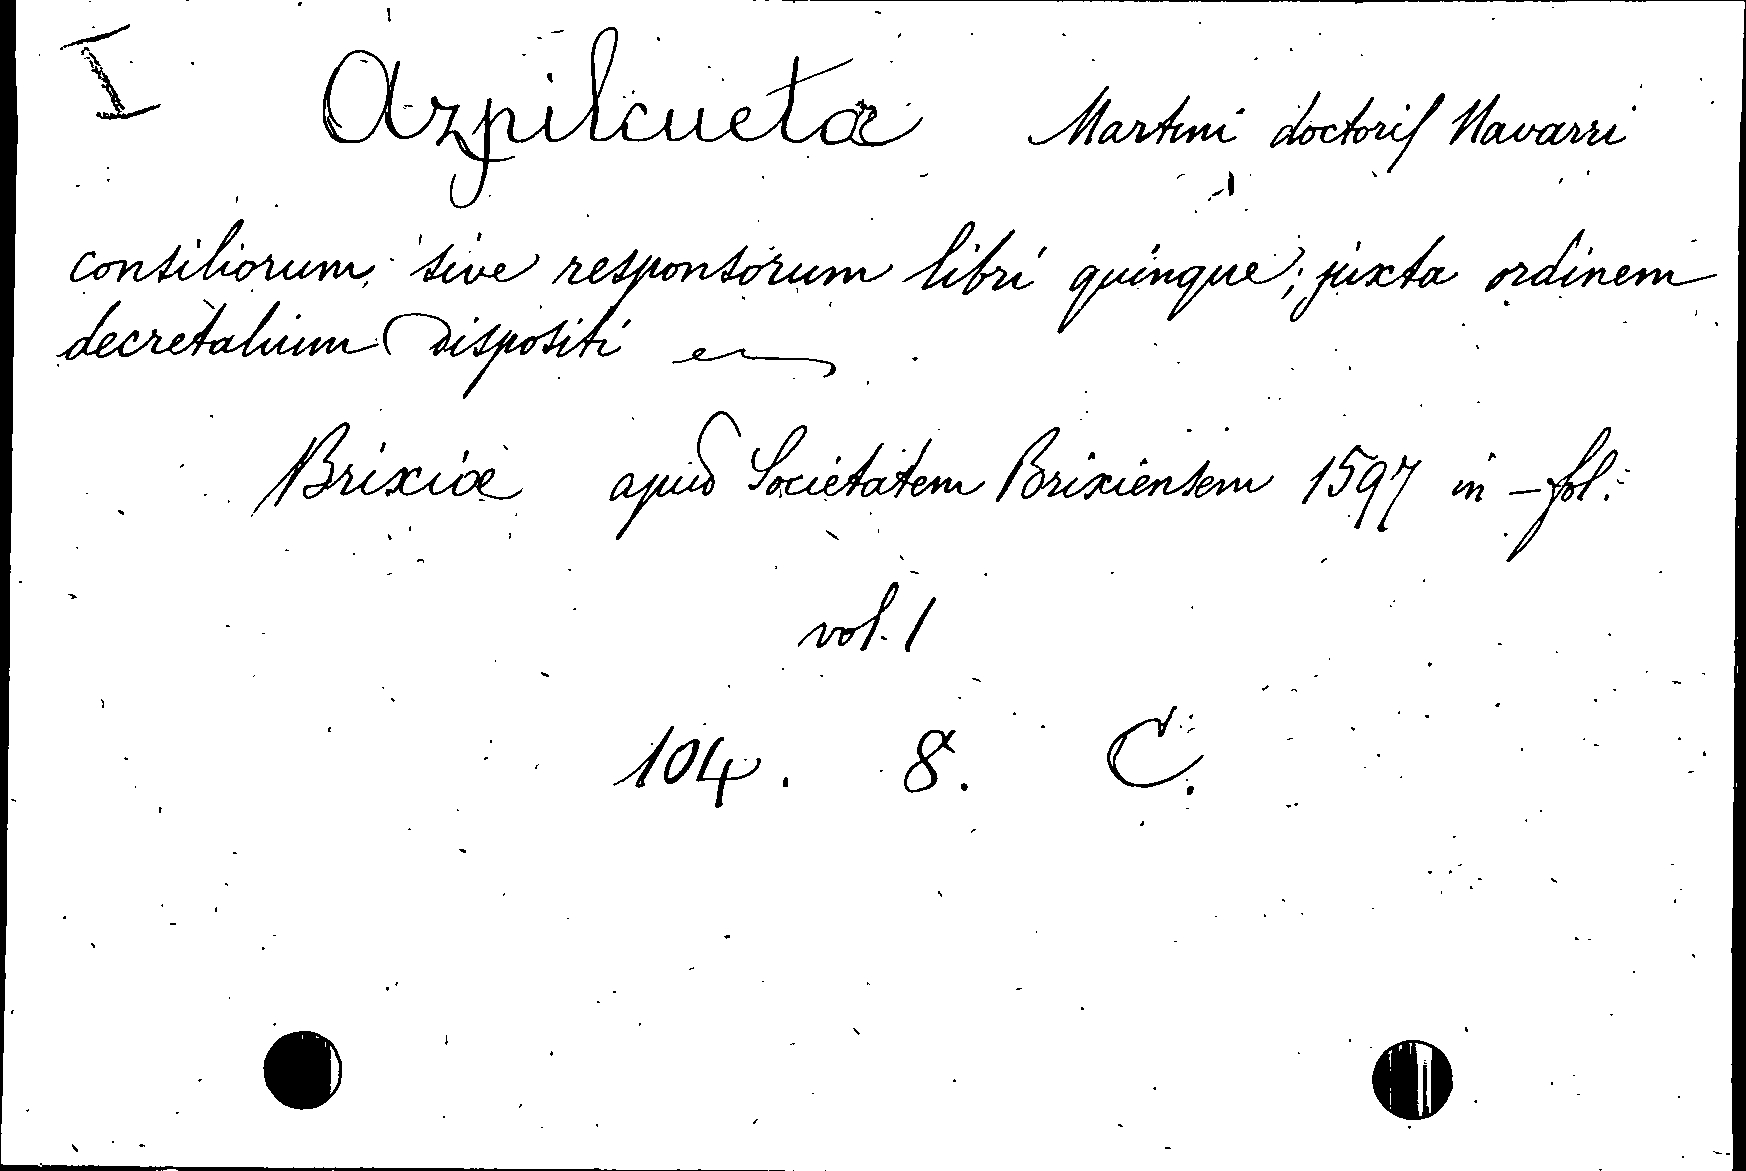 I Azpilcuetæ Martini doctoris Navarri
consiliorum sive responsorum libri quinque; juxta ordinem
decretalium dispositi
Brixiæ apud Societatem Brixiensem 1597 in-fol.
vol. 1
104. 8. C.